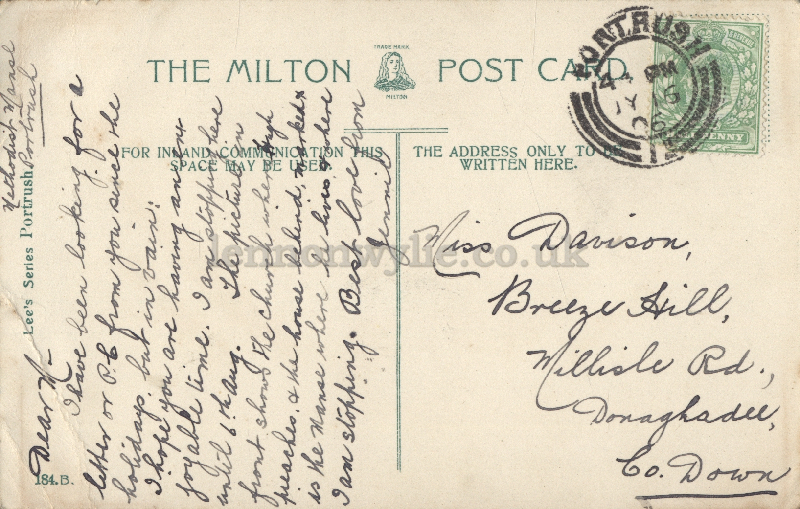 Methodist Manse
Portrush
Lee's Series Portrush
184.B.
THE MILTON POST CARD
TRADE MARK
MILTON
FOR INLAND COMMUNICATION THIS
SPACE MAY BE USED
THE ADDRESS ONLY TO BE
WRITTEN HERE.
Dear M-
I have been looking for a
letter or P.C from you since the
holidays but in vain.
I hope you are having an en-
joyable time. I am stopping here
until 6th Aug. The picture in
front shows the church where Hugh
preaches, & the house behind, marked x
is the Manse where he lives, & where
I am stopping. Best love from
Jennie
PORTRUSH
4 PM
JY 6
06
PENNY
Miss Davison,
Breeze Hill,
Millisle Rd.,
Donaghadee,
Co. Down
lennonwylie.co.uk